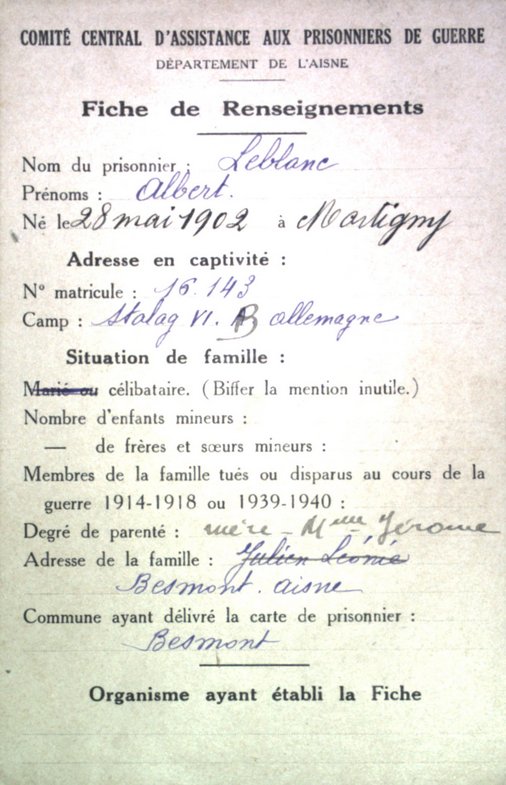 COMITÉ CENTRAL D'ASSISTANCE AUX PRISONNIERS DE GUERRE
DÉPARTEMENT DE L'AISNE
Fiche de Renseignements
Nom du prisonnier : Leblanc
Prénoms : Albert.
Né le 28 mai 1902 à Martigny
Adresse en captivité :
N° matricule : 16.143
Camp : Stalag VI. B allemagne
Situation de famille :
Marié ou célibataire. (Biffer la mention inutile.)
Nombre d'enfants mineurs :
— de frères et sœurs mineurs :
Membres de la famille tués ou disparus au cours de la
guerre 1914-1918 ou 1939-1940 :
Degré de parenté : mère - Mme Jérome
Adresse de la famille : Julien Léonie
Besmont. aisne
Commune ayant délivré la carte de prisonnier :
Besmont
Organisme ayant établi la Fiche